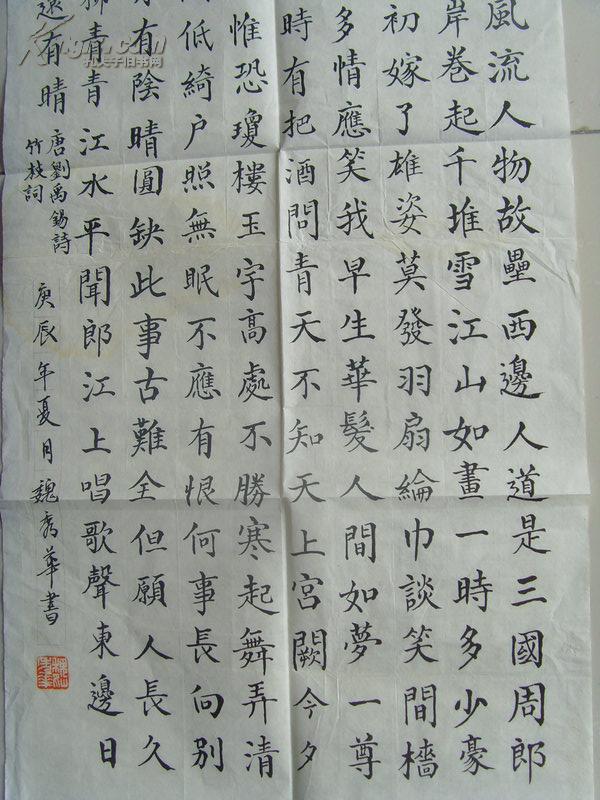 風流人物故壘西邊人道是三國周郎
岸卷起千堆雪江山如畫一時多少豪
初嫁了雄姿英發羽扇綸巾談笑間檣
多情應笑我早生華髮人間如夢一尊
時有把酒問青天不知天上宮闕今夕
惟恐瓊樓玉宇高處不勝寒起舞弄清
低綺户照無眠不應有恨何事長向別
有陰晴圓缺此事古難全但願人長久
青青江水平聞郎江上唱歌聲東邊日
還有晴
唐劉禹錫詩
竹枝詞
庚辰年夏月魏秀華書
孔夫子旧书网